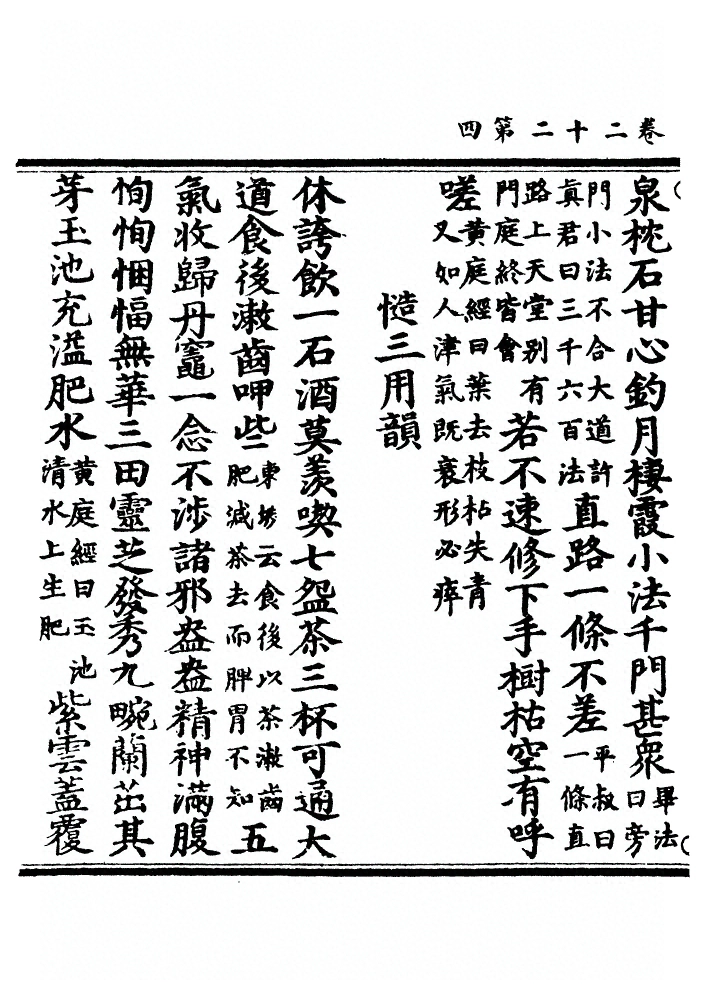 卷二十二第四
泉枕石甘心釣月棲霞小法千門甚衆畢法曰旁
門小法不合大道許眞君曰三千六百法直路一條不差平叔曰一條直
路上天堂别有門庭終皆會若不速修下手樹枯空有呼
嗟黄庭經曰葉去枝枯失青又如人津氣既衰形必瘁
慥三用韻
休誇飲一石酒莫羨喫七盌茶三杯可通大
道食後漱齒呷些東坡云食後以茶漱齒肥減茶去而脾胃不知五
氣收歸丹竈一念不涉諸邪盎盎精神滿腹
恂恂悃愊無華三田靈芝發秀九畹蘭茁其
芽玉池充溢肥水黄庭經曰玉池清水上生肥紫雲蓋覆